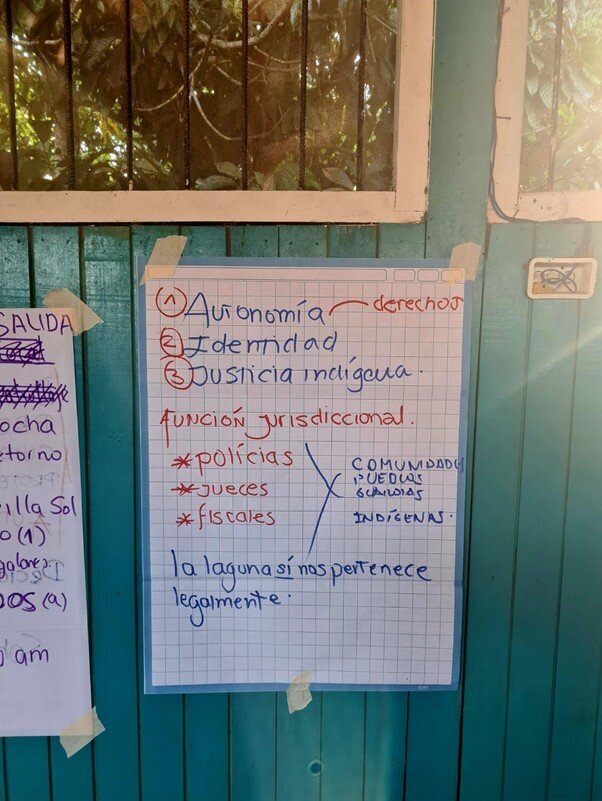 SALIDA
ocha
etorno
villa Sol
o (1)
DOS (a)
am
① Autonomía — derechos
② Identidad
③ Justicia indígena.
FUNCIÓN jurisdiccional.
* polícias
* jueces
* fiscales
COMUNIDADES
PUEBLOS
GUARDIAS
INDÍGENAS.
la laguna sí nos pertenece
legalmente.